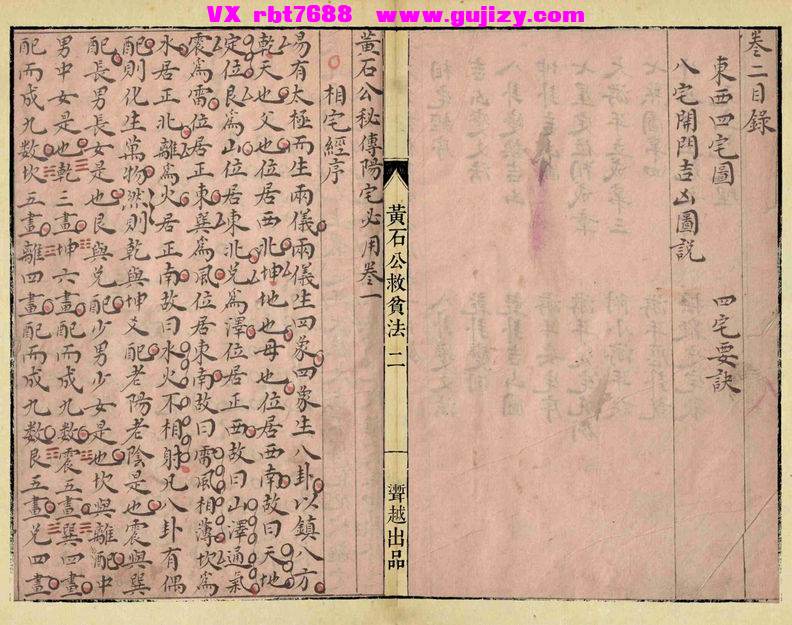 VX rbt7688 www.gujizy.com
卷二目錄
東西四宅圖
四宅要訣
八宅開門吉凶圖説
黃石公救貧法 二
灊越出品
黃石公秘傳陽宅必用卷一
相宅經序
易有太極而生兩儀兩儀生四象四象生八卦以鎮八方
乾天也父也位居西北坤地也母也位居西南故曰天地
定位艮為山位居東北兌為澤位居正西故曰山澤通氣
震為雷位居正東巽為風位居東南故曰雷風相薄坎為
水居正北離為火居正南故曰水火不相射凡八卦有偶
配則化生萬物然則乾與坤交配老陽老陰是也震與巽
配長男長女是也艮與兌配少男少女是也坎與離配中
男中女是也乾三畫坤六畫配而成九數震五畫巽四畫
配而成九數坎五畫離四畫配而成九數艮五畫兌四畫